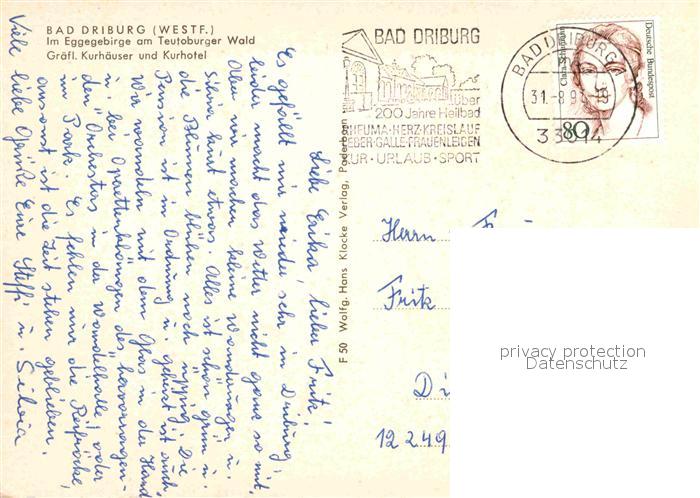 BAD DRIBURG (WESTF.)
Im Eggegebirge am Teutoburger Wald
Gräfl. Kurhäuser und Kurhotel
Liebe Erika, lieber Fritz!
Es gefällt mir wieder sehr in Driburg,
leider macht das Wetter nicht ganz so mit.
Aber wir machen kleine Wanderungen u.
Silvia kurt etwas. Alles ist schön grün u.
die Blumen blühen noch üppig. Die
Pension ist in Ordnung u. geheizt ist auch.
Wir wandeln mit dem Glas in der Hand
u. bei Operettenklängen des hervorragen-
den Orchesters in der Wandelhalle oder
im Park. Es fehlen nur die Reifröcke,
ansonst ist die Zeit stehen geblieben.
Viele liebe Grüße Eure Steffi u. Silvia
F 50 Wolfg. Hans Klocke Verlag, Paderborn
BAD DRIBURG
über
200 Jahre Heilbad
RHEUMA·HERZ·KREISLAUF
LEBER·GALLE·FRAUENLEIDEN
KUR · URLAUB · SPORT
BAD DRIBURG
31.-8.93
33014
Deutsche Bundespost
Clara Schumann
80
Herrn
Fritz
12249
privacy protection
Datenschutz